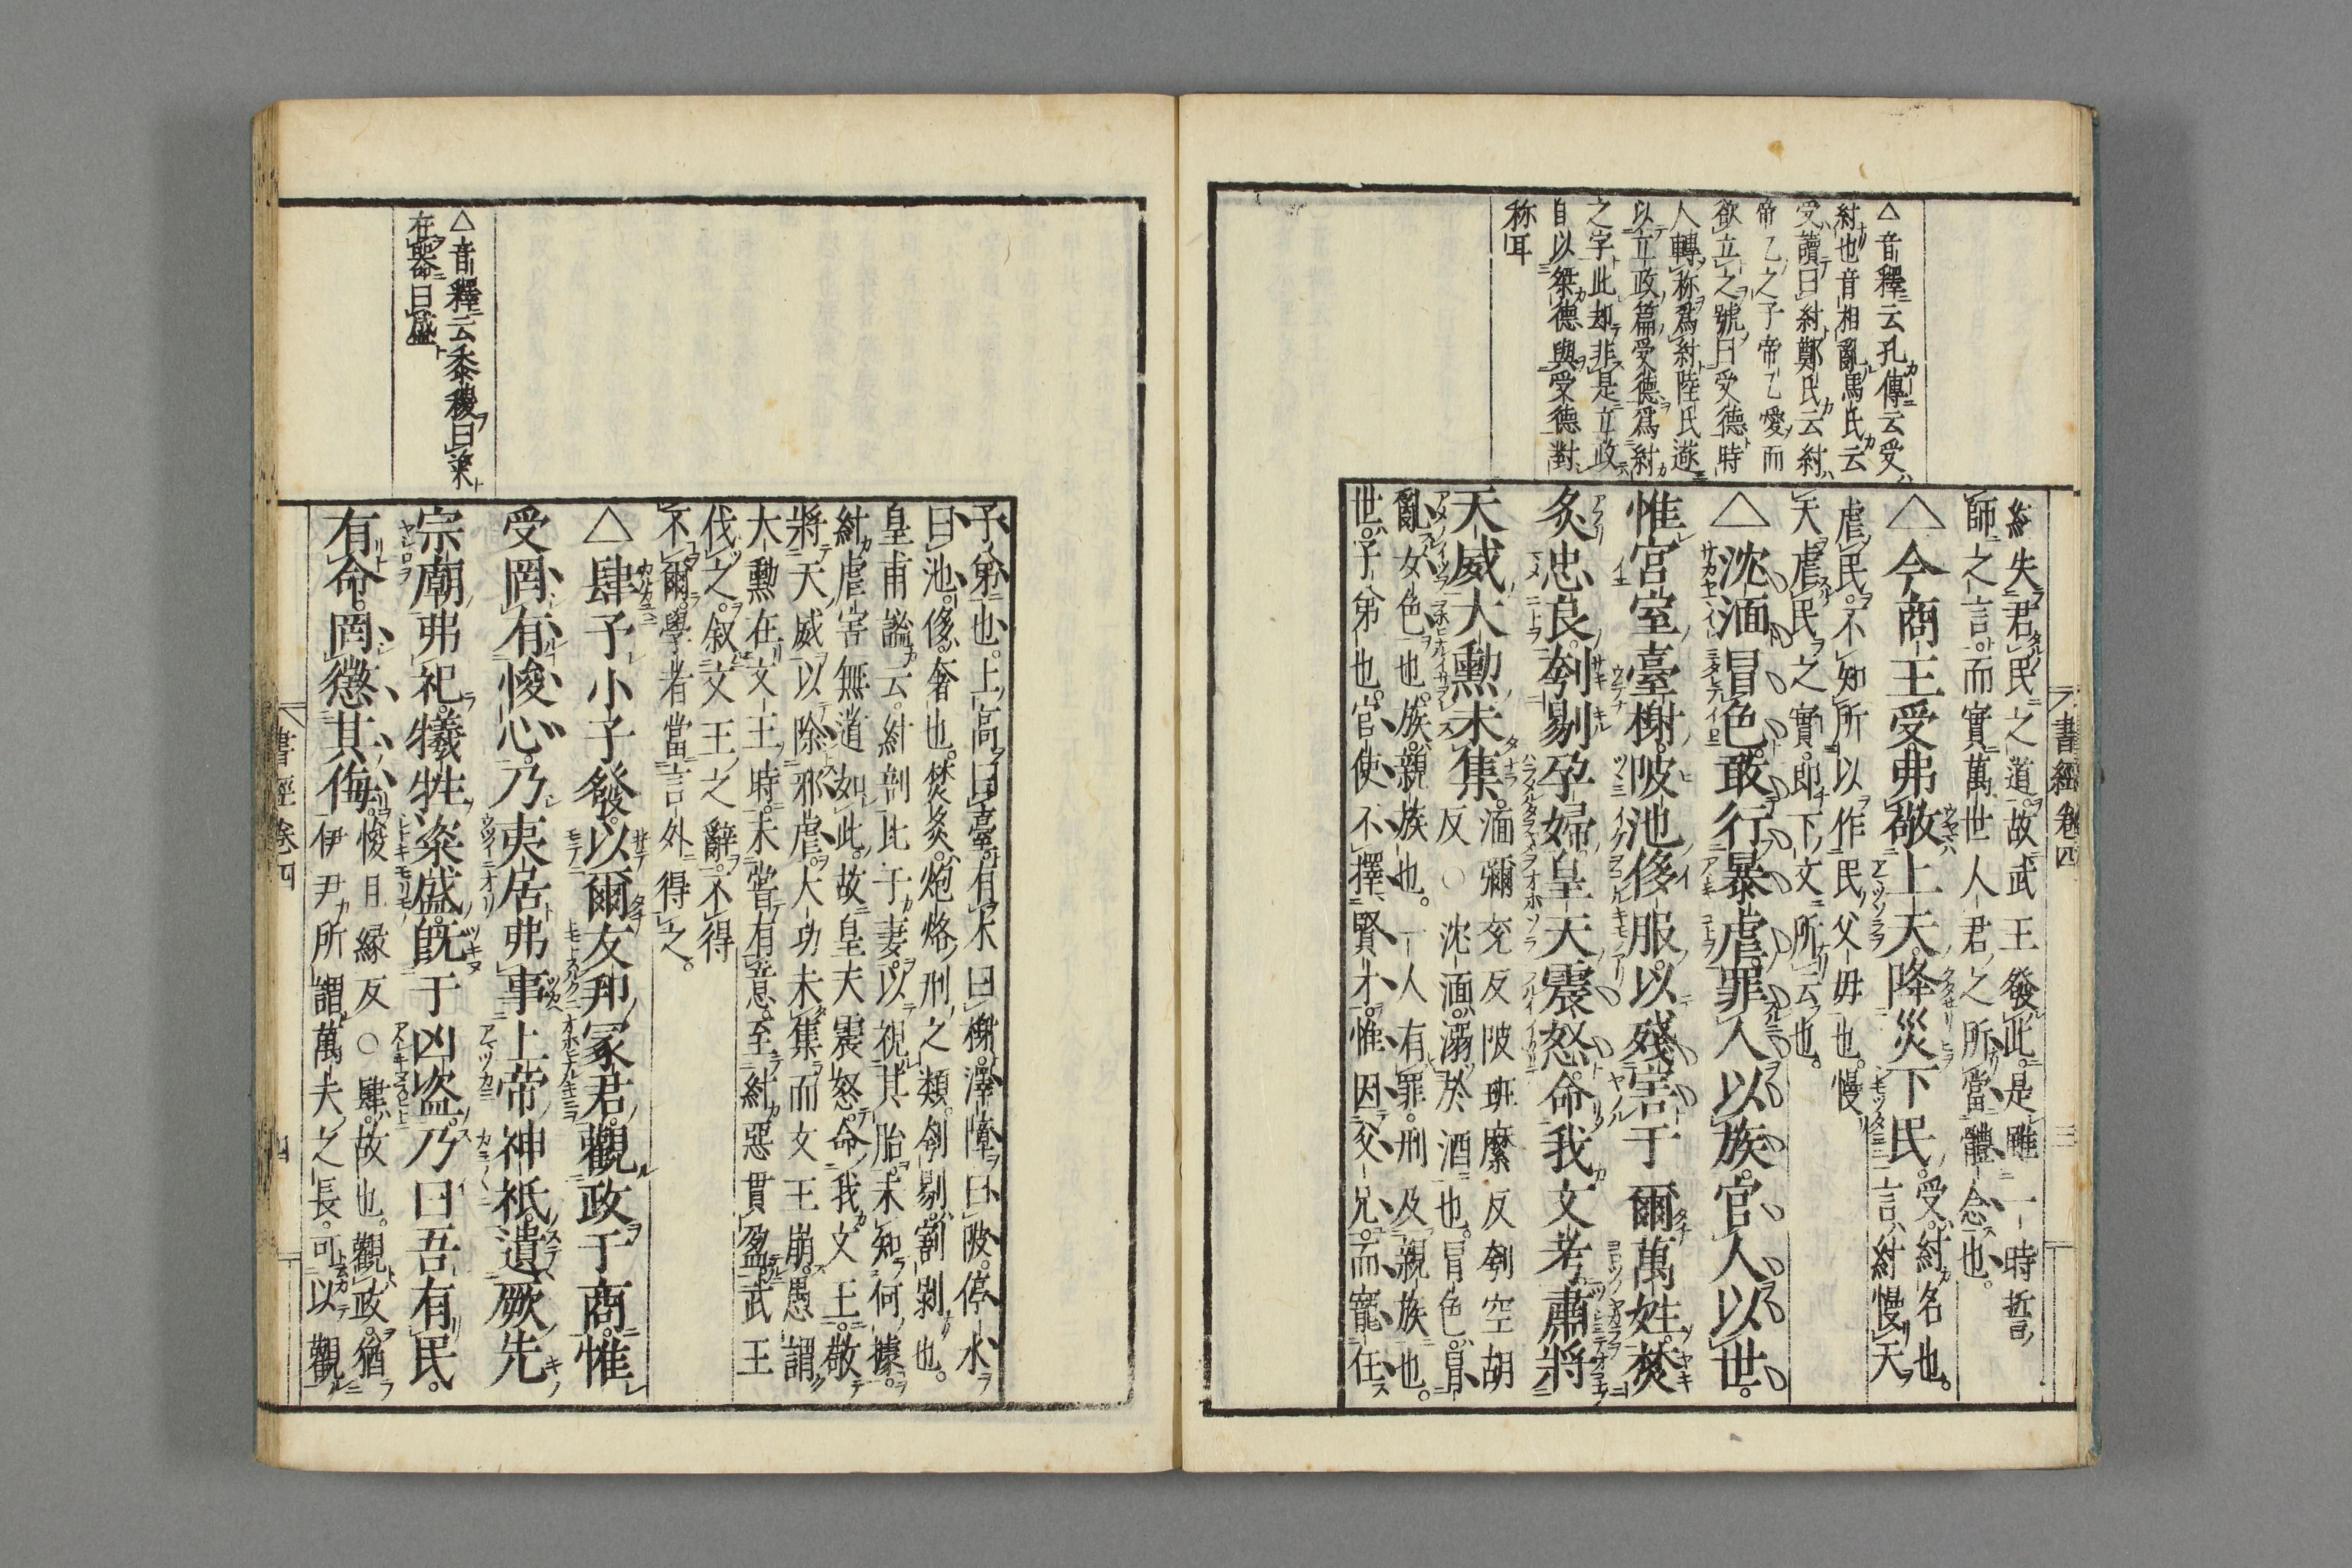 △音釋云孔傳云受
紂也音相亂馬氏云
受讀曰紂鄭氏云紂
帝乙之子帝乙愛而
欲立之號曰受德時
人轉称爲紂陸氏遂
以立政篇受德爲紂
之字此却非是立政
自以桀德與受德對
称耳
紂失君民之道故武王發此是雖一時誓
師之言而實萬世人君之所當體念也。
△今商王受弗敬上天降災下民。受紂名也。
虐民。不知所以作民父母也。慢
言紂慢天
天虐民之實。卽下文所云也。
△沈湎冒色敢行暴虐罪人以族。官人以世。
惟宮室臺榭陂池侈服以殘害于爾萬姓焚
炙忠良刳剔孕婦皇天震怒命我文考肅將
天威大勳未集。湎彌兗反陂班糜反刳空胡
反○沈湎溺於酒也。冒色冒
亂女色也。族親族也。一人有罪。刑及親族也。
世子弟也。官使不擇賢才惟因父兄。而寵任
書經卷四
三
子弟也。上高曰臺有木曰榭澤障曰陂停水
曰池。侈奢也。焚炙炮烙刑之類刳剔割剝也。
皇甫謐云。紂剖比干妻以視其胎未知何據。
紂虐害無道如此。故皇天震怒命我文王。敬
將天威以除邪虐大功未集而文王崩愚謂
大勳在文王時。未嘗有意。至紂惡貫盈武王
伐之。叙文王之辭不得
不爾學者當言外得之。
△肆予小子發以爾友邦冡君觀政于商惟
受罔有悛心乃夷居弗事上帝神祇遺厥先
宗廟弗祀犧牲粢盛旣于凶盗乃曰吾有民。
有命罔懲其侮悛且緣反○肆故也。觀政猶
伊尹所謂萬夫之長。可以觀
△音釋云黍稷曰粢
在器曰盛
書經卷四
四